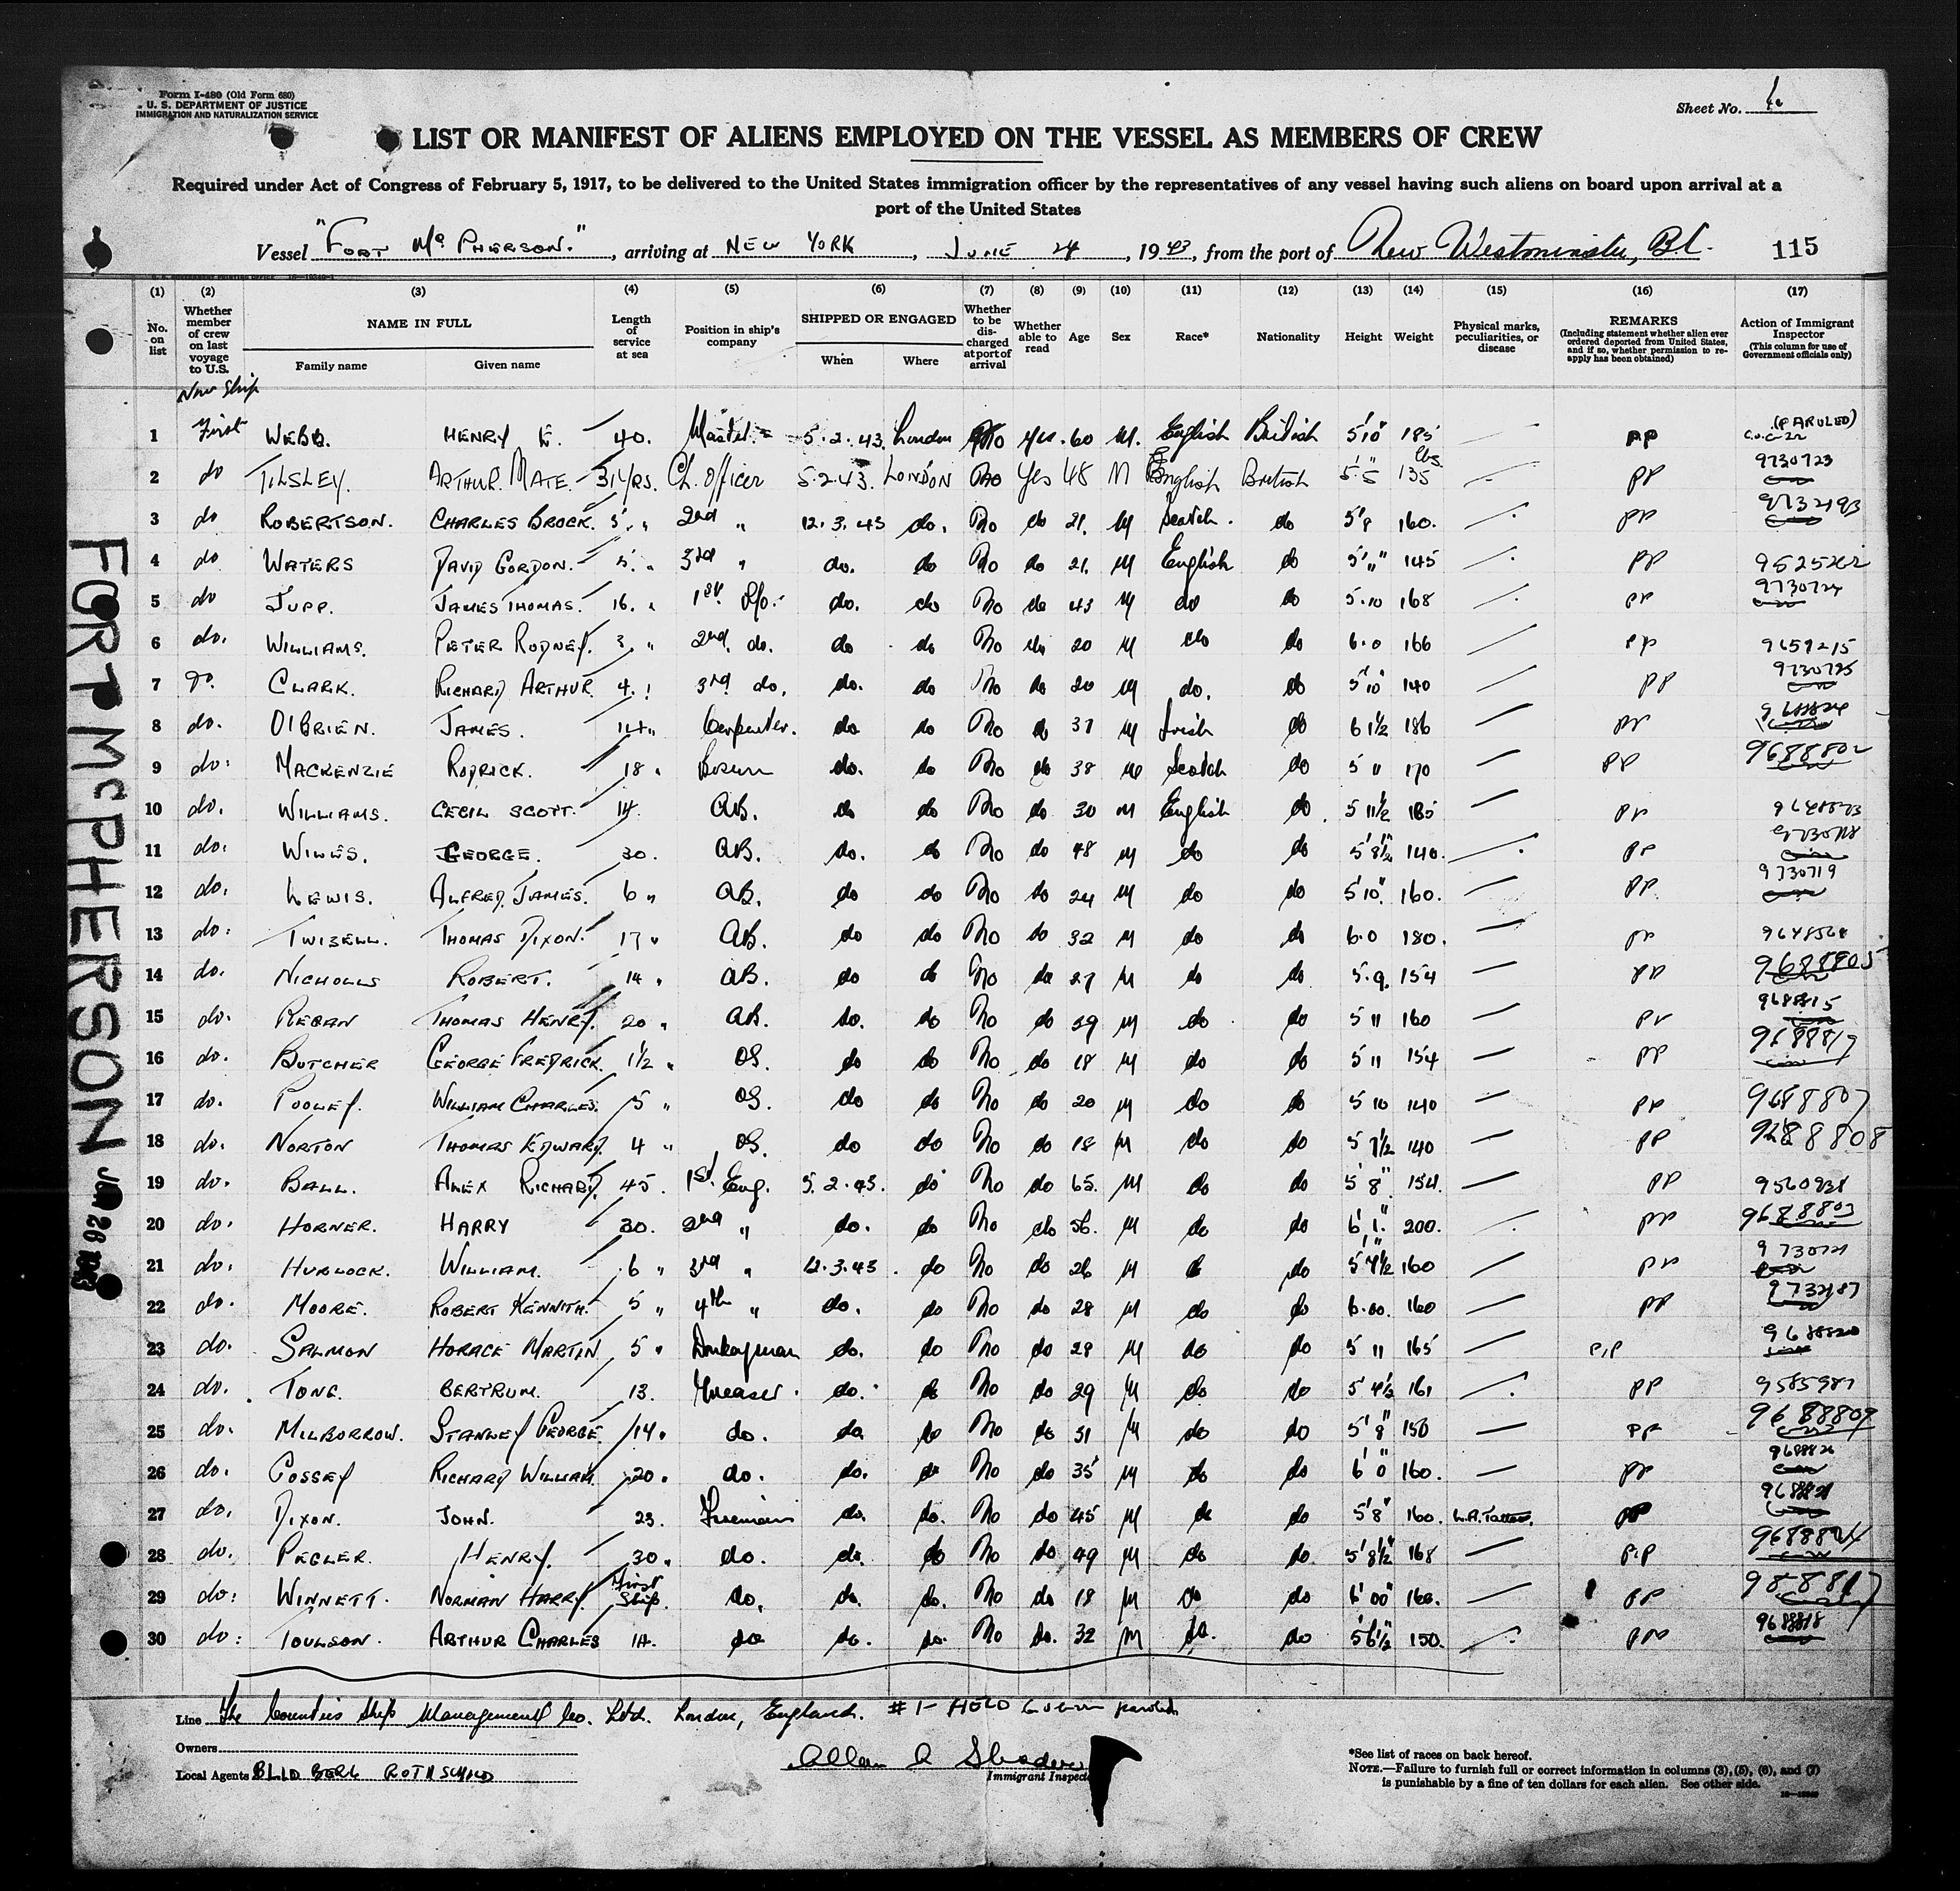 Form I-480 (Old Form 680)
U. S. DEPARTMENT OF JUSTICE
IMMIGRATION AND NATURALIZATION SERVICE
Sheet No.
LIST OR MANIFEST OF ALIENS EMPLOYED ON THE VESSEL AS MEMBERS OF CREW
Required under Act of Congress of February 5, 1917, to be delivered to the United States immigration officer by the representatives of any vessel having such aliens on board upon arrival at a
port of the United States
Vessel "FORT Mc PHERSON.", arriving at NEW YORK, JUNE 24, 1943, from the port of New Westminster, B.C. 115
(1) (2) (3) (4) (5) (6) (7) (8) (9) (10) (11) (12) (13) (14) (15) (16) (17)
No. on list
Whether member of crew on last voyage to U.S.
NAME IN FULL
Family name Given name
Length of service at sea
Position in ship's company
SHIPPED OR ENGAGED
When Where
Whether to be discharged at port of arrival
Whether able to read
Age
Sex
Race*
Nationality
Height
Weight
Physical marks, peculiarities, or disease
REMARKS
(Including statement whether alien ever ordered deported from United States, and if so, whether permission to re-apply has been obtained)
Action of Immigrant Inspector
(This column for use of Government officials only)
New Ship
1 First WEBB. HENRY E. 40. Master 5.2.43. London No Yes. 60 M. English British 5'10" 185 PP (PAROLED)
2 do TILSLEY. ARTHUR MATE. 31 YRS. Ch. Officer 5.2.43. LONDON No Yes 48 M English British 5'.5" 135 lbs PP 9730723
3 do ROBERTSON. CHARLES BROCK. 5 " 2nd " 12.3.43 do. No do 21. M Scotch. do 5'8 160. PP 9732193
4 do WATERS DAVID GORDON. 5 " 3rd " do. do No do 21. M English do 5'11" 145 PP
5 do JUPP. JAMES THOMAS. 16. " 1st R/o. do. do No do 43 M do do 5.10 168 PP 9730724
6 do. WILLIAMS. PETER RODNEY. 3. " 2nd. do. do do No do 20 M do do 6.0 166 PP 9659215
7 do. CLARK. RICHARD ARTHUR. 4. 3rd do. do. do No do 20 M do. do 5'10" 140 PP 9730725
8 do. O'BRIEN. JAMES. 14 " Carpenter. do. do No do 37 M Irish do 6 1½ 186 PP
9 do. MACKENZIE RODRICK. 18 " Bosun do. do No do 38 M Scotch do 5 11 170 PP 9688802
10 do. WILLIAMS. CECIL SCOTT. 14. AB. do do No do 30 M English do. 5 11½ 185 PP
11 do. WILES. GEORGE. 30. AB. do. do No do 48 M do do 5'8½" 140. PP 9730718
12 do. LEWIS. ALFRED JAMES. 6 " AB. do do No do 24 M do do 5'10" 160. PP 9730719
13 do. TWIZELL. THOMAS DIXON. 17 " AB. do do No do 32 M do do 6.0 180. PP
14 do. NICHOLLS ROBERT. 14 " AB. do do No do 27 M do do 5.9. 154 PP 9688805
15 do. REGAN THOMAS HENRY. 20 " AB. do. do No do 39 M do do 5 11 160 PP 9688815
16 do. BUTCHER GEORGE FREDRICK. 1½ " OS. do do No do 18 M do do 5 11 154 PP
17 do. POOLEY. WILLIAM CHARLES. 5 " OS. do do No do 20 M do do 5 10 140 PP 9688807
18 do. NORTON THOMAS EDWARD. 4 " OS. do do No do 18 M do do 5 7½ 140 PP 9688808
19 do. BALL. ALEX RICHARD. 45. 1st Eng. 5.2.43. do No do 65. M do do 5'8" 154. PP
20 do. HORNER. HARRY 30. 2nd " do. do No do 56. M do do 6'1." 200. PP 9688803
21 do. HURLOCK. WILLIAM. 6 " 3rd " 12.3.43. do No do 26 M do do 160 PP
22 do. MOORE. ROBERT KENNITH. 5 " 4th " do. do No do 28 M do do 6.00. 160 PP 9732187
23 do. SALMON HORACE MARTIN 5 " Donkeyman do. do No do 28 M do do 5 11 165 P.P 9688820
24 do. TONG. BERTRUM. 13. Greaser. do. do No do 29 M do do 5'4½ 161 PP 9585987
25 do. MILBORROW. STANLEY GEORGE. 14. do. do. do No do 31 M do do 5'8" 150 PP 9688809
26 do. RICHARD WILLIAM 20. do. do. do No do 35 M do do 6'0" 160. PP
27 do. DIXON. JOHN. 23. Fireman do. do. No do 45 M do do 5'8" 160. L.A. Tattoo. PP
28 do. PEGLER. HENRY. 30. do. do. do No do 49 M do do. 5'8½" 168 P.P 9688824
29 do. WINNETT. NORMAN HARRY. First Ship. do. do. do. No do 18 M do do 6'00" 160. PP
30 do. TOULSON. ARTHUR CHARLES 14. do do. do. No do. 32 M do. do 5'6½" 150. PP 9688818
Line The Counties Ship Management Co. Ltd. London, England. #1- HELD
Owners
Local Agents ROTHSCHILD
Immigrant Inspector
*See list of races on back hereof.
NOTE.—Failure to furnish full or correct information in columns (3), (5), (6), and (7)
is punishable by a fine of ten dollars for each alien. See other side.
FORT McPHERSON